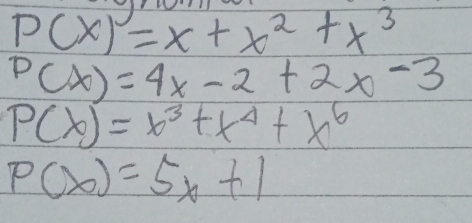 P(x) = x + x² + x³
P(x) = 4x - 2 + 2x - 3
P(x) = x³ + x⁴ + x⁶
P(x) = 5x + 1